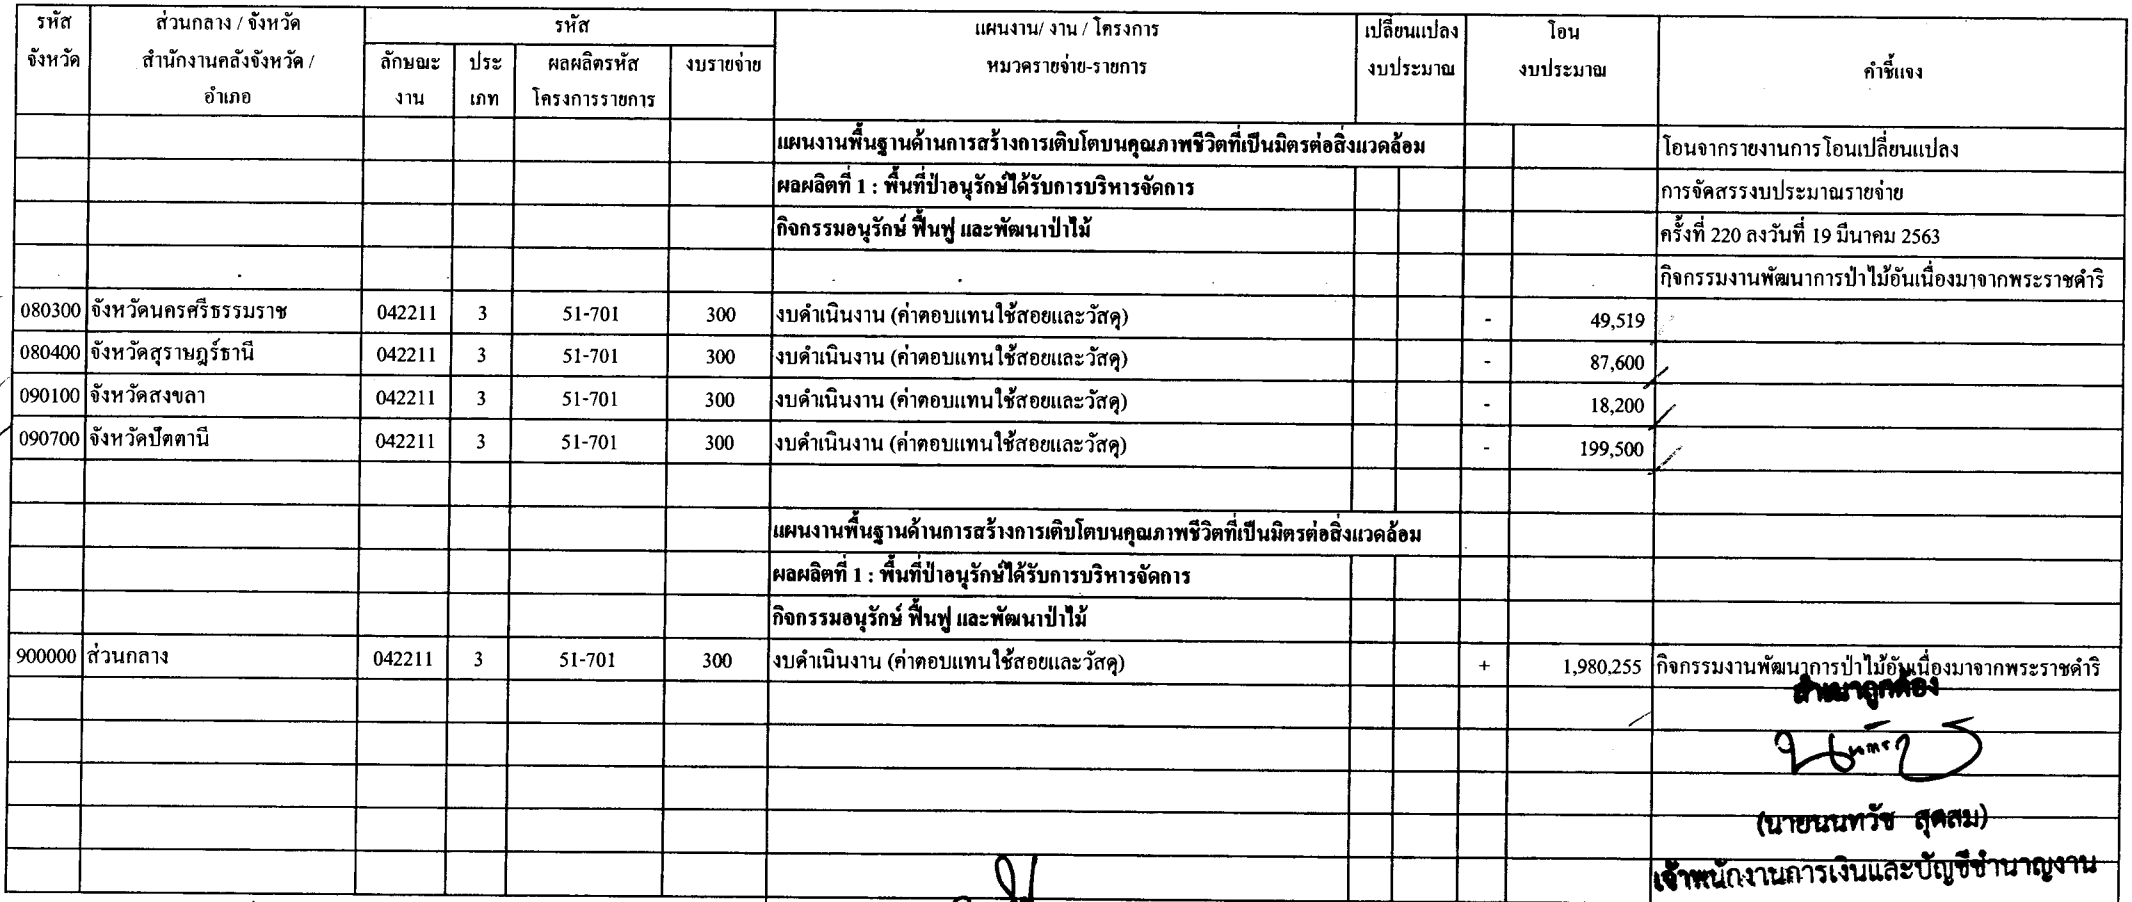 รหัส ส่วนกลาง / จังหวัด รหัส แผนงาน/ งาน / โครงการ เปลี่ยนแปลง โอน
จังหวัด สำนักงานคลังจังหวัด / ลักษณะ ประ ผลผลิตรหัส งบรายจ่าย หมวดรายจ่าย-รายการ งบประมาณ งบประมาณ คำชี้แจง
อำเภอ งาน เภท โครงการรายการ
แผนงานพื้นฐานด้านการสร้างการเติบโตบนคุณภาพชีวิตที่เป็นมิตรต่อสิ่งแวดล้อม โอนจากรายงานการโอนเปลี่ยนแปลง
ผลผลิตที่ 1 : พื้นที่ป่าอนุรักษ์ได้รับการบริหารจัดการ การจัดสรรงบประมาณรายจ่าย
กิจกรรมอนุรักษ์ ฟื้นฟู และพัฒนาป่าไม้ ครั้งที่ 220 ลงวันที่ 19 มีนาคม 2563
กิจกรรมงานพัฒนาการป่าไม้อันเนื่องมาจากพระราชดำริ
080300 จังหวัดนครศรีธรรมราช 042211 3 51-701 300 งบดำเนินงาน (ค่าตอบแทนใช้สอยและวัสดุ) - 49,519
080400 จังหวัดสุราษฎร์ธานี 042211 3 51-701 300 งบดำเนินงาน (ค่าตอบแทนใช้สอยและวัสดุ) - 87,600
090100 จังหวัดสงขลา 042211 3 51-701 300 งบดำเนินงาน (ค่าตอบแทนใช้สอยและวัสดุ) - 18,200
090700 จังหวัดปัตตานี 042211 3 51-701 300 งบดำเนินงาน (ค่าตอบแทนใช้สอยและวัสดุ) - 199,500
แผนงานพื้นฐานด้านการสร้างการเติบโตบนคุณภาพชีวิตที่เป็นมิตรต่อสิ่งแวดล้อม
ผลผลิตที่ 1 : พื้นที่ป่าอนุรักษ์ได้รับการบริหารจัดการ
กิจกรรมอนุรักษ์ ฟื้นฟู และพัฒนาป่าไม้
900000 ส่วนกลาง 042211 3 51-701 300 งบดำเนินงาน (ค่าตอบแทนใช้สอยและวัสดุ) + 1,980,255 กิจกรรมงานพัฒนาการป่าไม้อันเนื่องมาจากพระราชดำริ
สำเนาถูกต้อง
(นายนนทวัช สุดสม)
เจ้าพนักงานการเงินและบัญชีชำนาญงาน